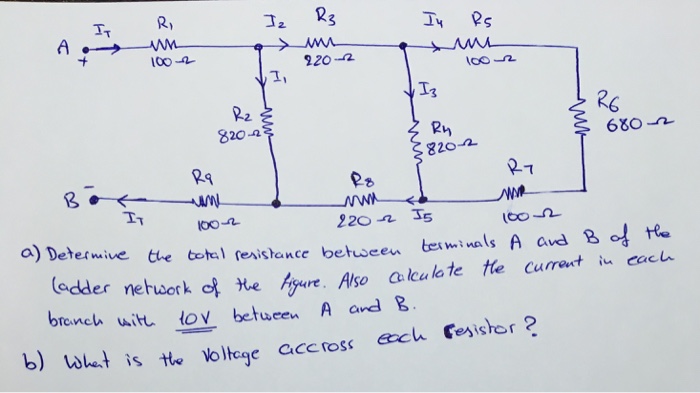 IT R1 I2 R3 I4 R5
A + 100Ω 220Ω 100Ω
I1 I3
R2 820Ω R4 820Ω R6 680Ω
R9 R8 R7
B - IT 100Ω 220Ω I5 100Ω
a) Determive the total resistance between terminals A and B of the
ladder network of the figure. Also calculate the current in each
branch with 10V between A and B.
b) What is the voltage accross each resistor?